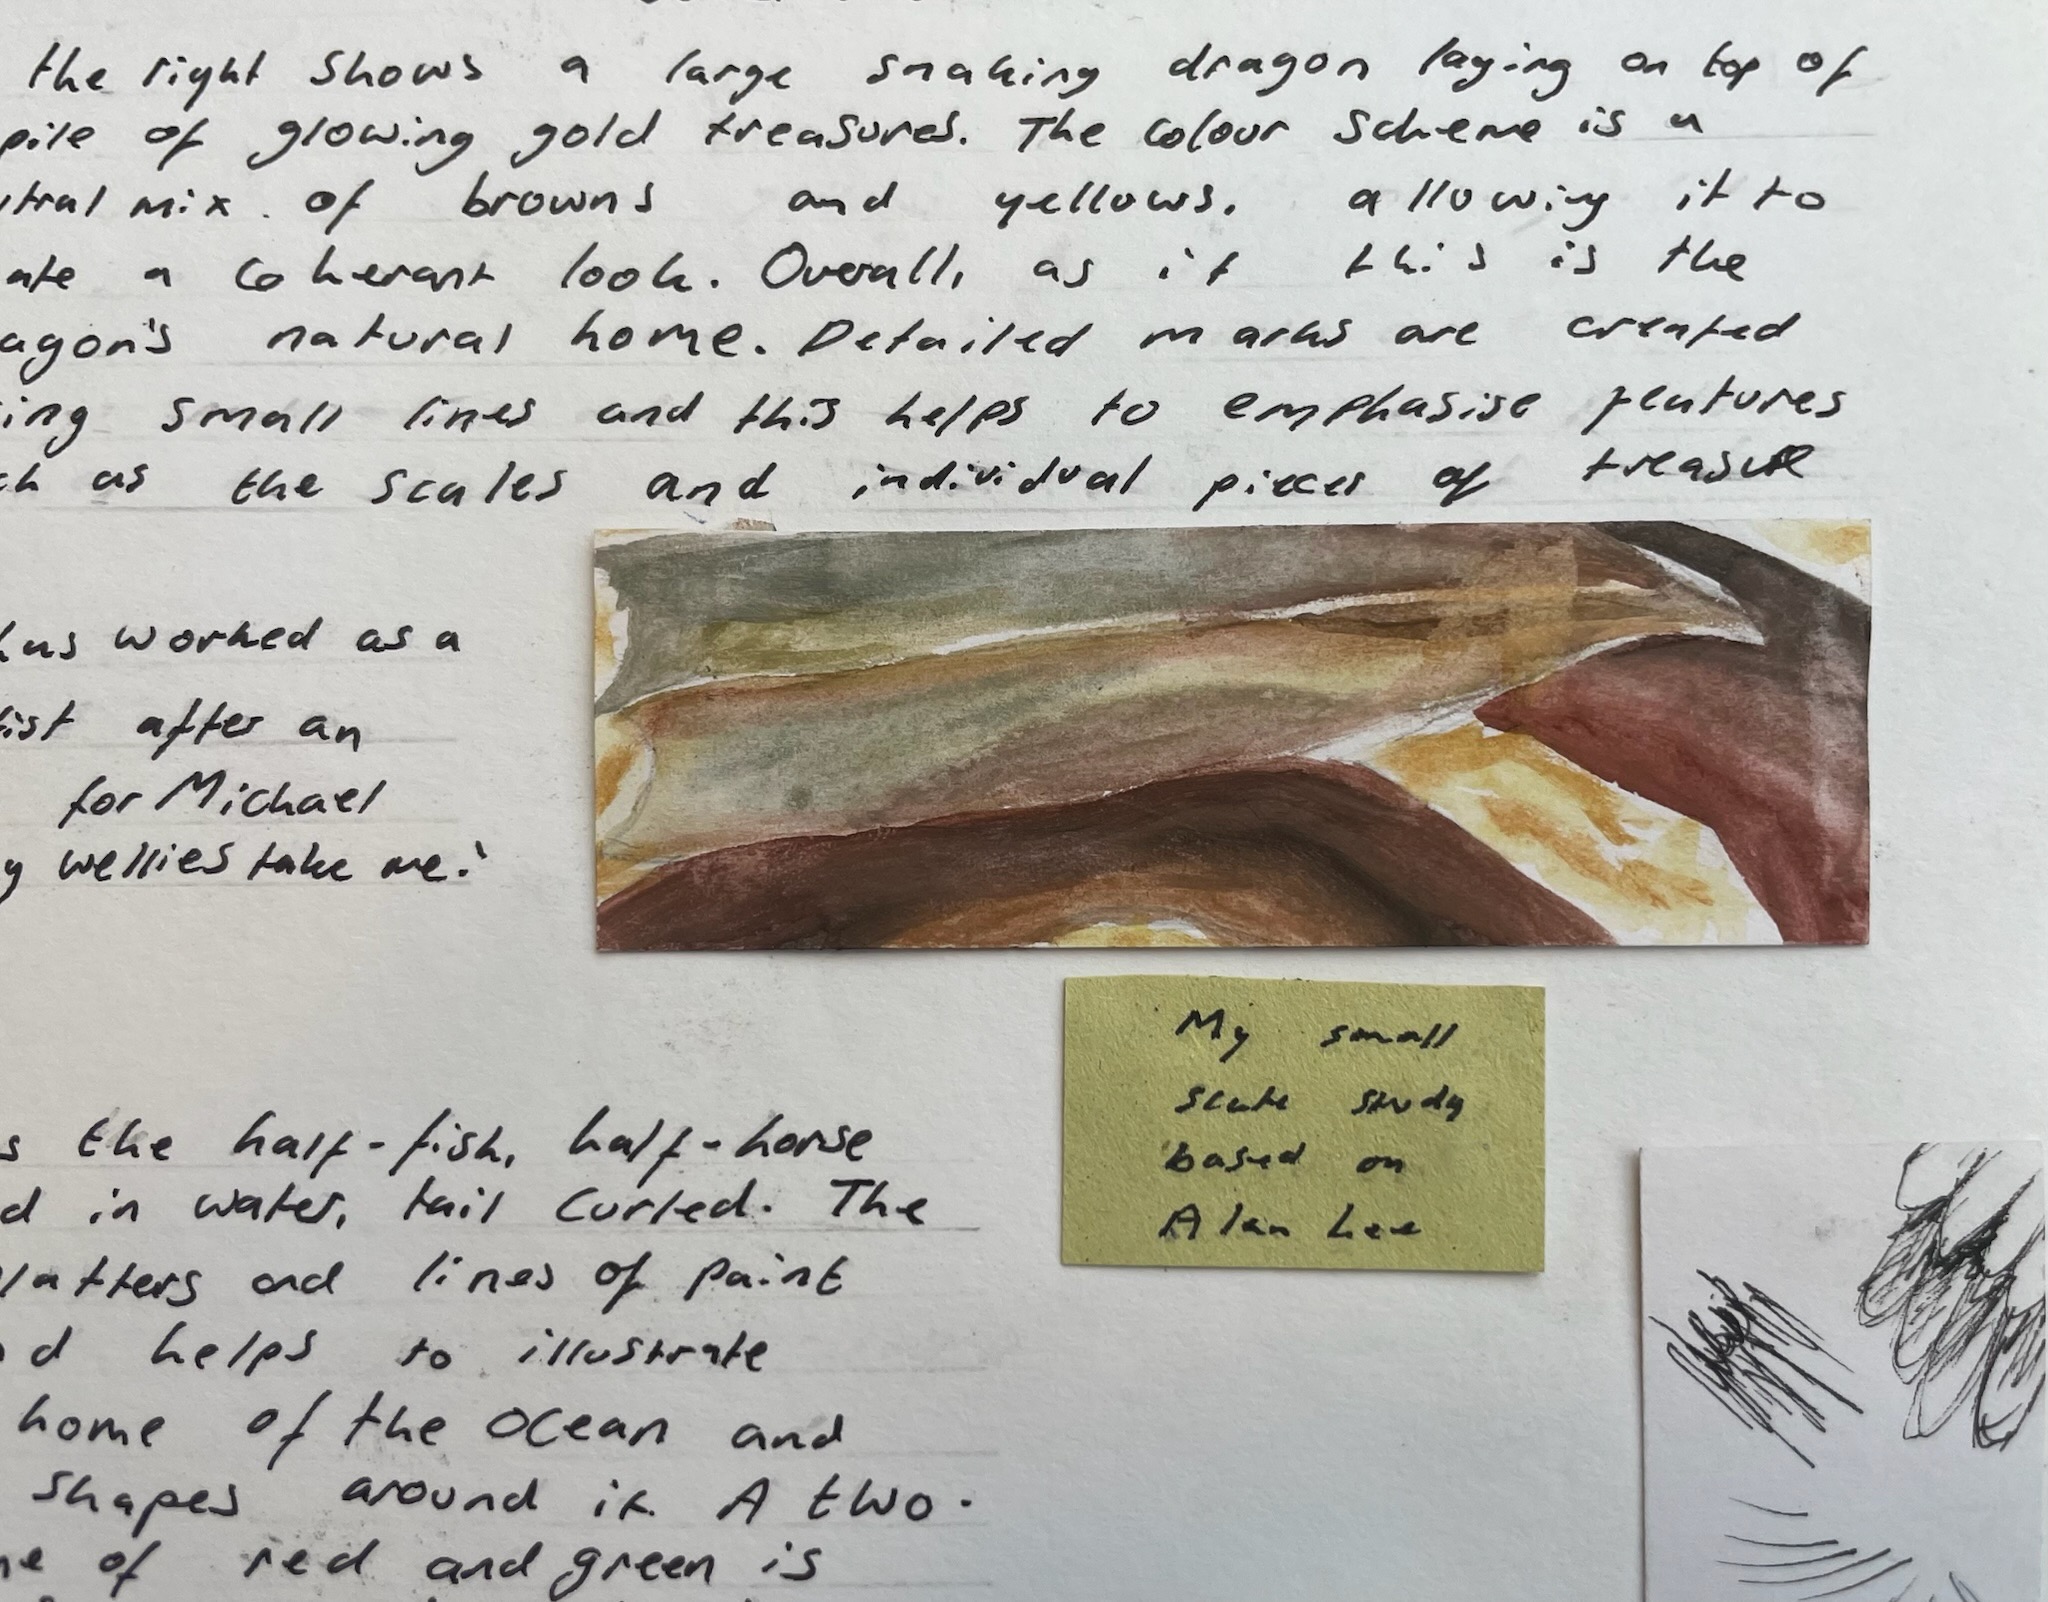 the right shows a large snaking dragon laying on top of
pile of glowing gold treasures. The colour scheme is a
utral mix of browns and yellows. allowing it to
ate a coherant look. Overall, as if this is the
agon's natural home. Detailed marks are created
ing small lines and this helps to emphasise features
ch as the scales and individual pieces of treasure
has worked as a
ist after an
for Michael
y wellies take me.'
My small
scale study
based on
Alan Lee
s the half-fish, half-horse
d in water, tail curled. The
latters and lines of paint
d helps to illustrate
home of the ocean and
shapes around it. A two-
me of red and green is